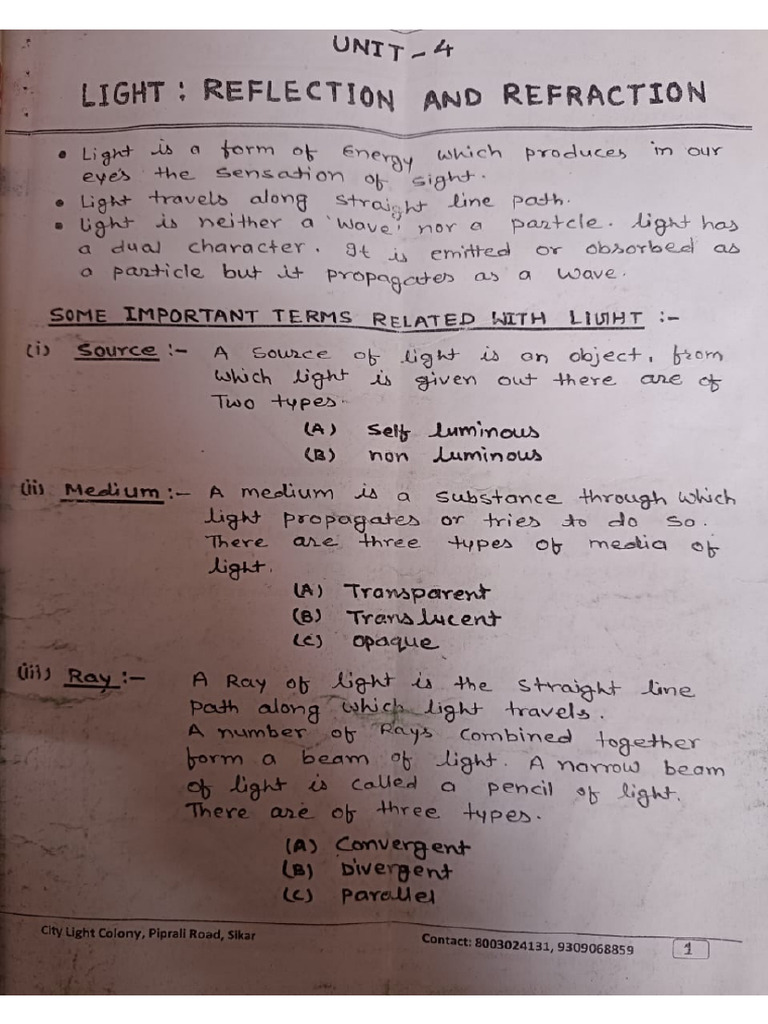 UNIT - 4
LIGHT : REFLECTION AND REFRACTION
• Light is a form of Energy which produces in our
eye's the sensation of sight.
• Light travels along straight line path.
• Light is neither a 'wave' nor a partcle. light has
a dual character. It is emitted or obsorbed as
a particle but it propagates as a wave.
SOME IMPORTANT TERMS RELATED WITH LIGHT :-
(i) Source :- A source of light is an object, from
which light is given out there are of
Two types.
(A) Self luminous
(B) non luminous
(ii) Medium :- A medium is a substance through which
light propagates or tries to do so.
There are three types of media of
light.
(A) Transparent
(B) Translucent
(C) opaque
(iii) Ray :- A Ray of light is the straight line
path along which light travels.
A number of Rays combined together
form a beam of light. A narrow beam
of light is called a pencil of light.
There are of three types.
(A) Convergent
(B) Divergent
(C) parallel
City Light Colony, Piprali Road, Sikar Contact: 8003024131, 9309068859 1